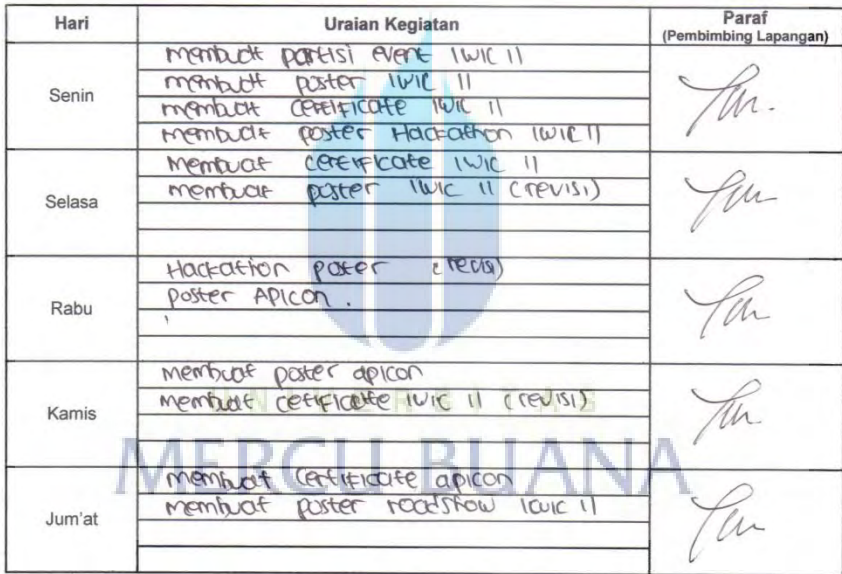 Hari Uraian Kegiatan Paraf
(Pembimbing Lapangan)
Senin
membuat partisi event IWIC 11
membuat poster IWIC 11
membuat certificate IWIC 11
membuat poster Hackathon IWIC 11
Selasa
membuat certificate IWIC 11
membuat poster IWIC 11 (revisi)
Rabu
Hackathon poster (revisi)
poster APICON .
Kamis
membuat poster apicon
membuat cetificate IWIC 11 (revisi)
UNIVERSITAS
MERCU BUANA
Jum'at
membuat certificate apicon
membuat poster roadshow IWIC 11